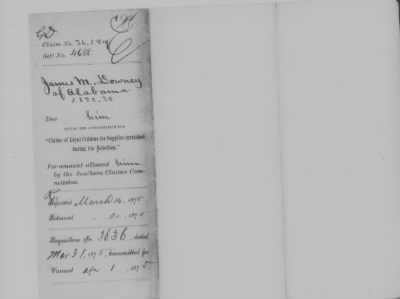 Claim No. 36,184
Sett! No. 4688
James M. Downey
of Alabama
$ 822.50
Due him
"Claims of Loyal Citizens for Supplies furnished
during the Rebellion."
For amount allowed him
by the Southern Claims Com-
mission.
Reported March 16, 1875
Returned " 20, 1875
Requisition No. 3636, dated
Mar 31, 1875, transmitted for
Warrant Apr 1, 1875